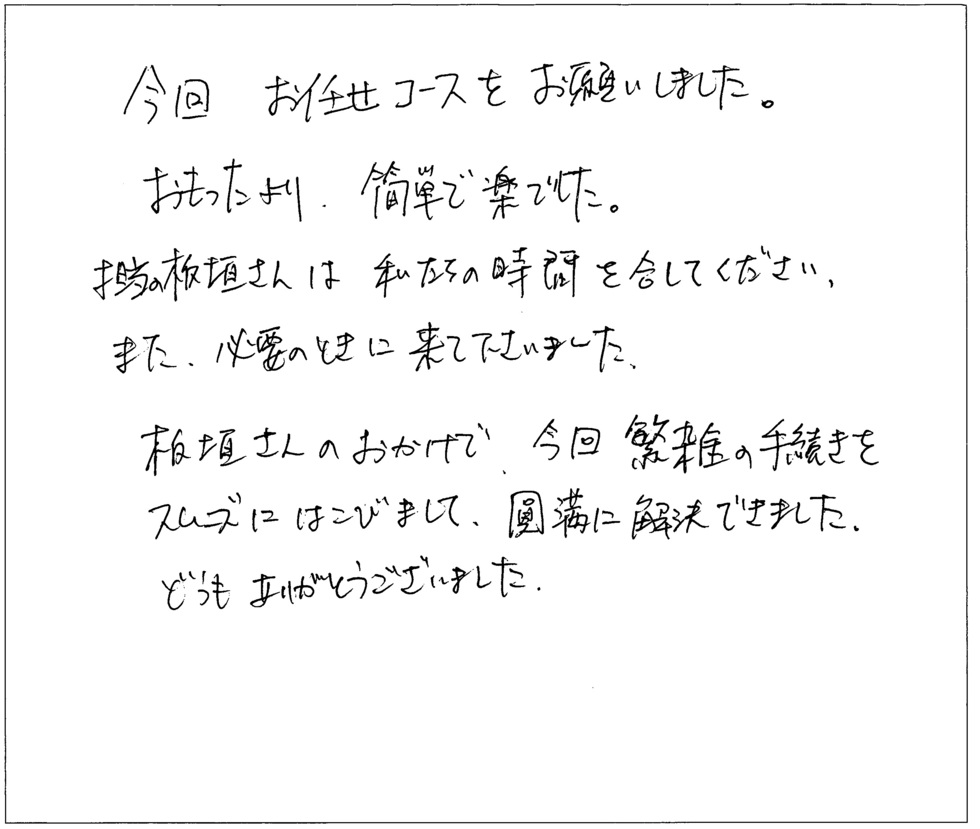 今回 お任せコースをお願いしました。
おもったより、簡単で楽でした。
担当の板垣さんは私たちの時間を合してください、
また、必要のときに来て下さいました、
板垣さんのおかげで、今回繁雑の手続きを
スムーズにはこびまして、圓満に解決できました。
どうもありがとうございました.